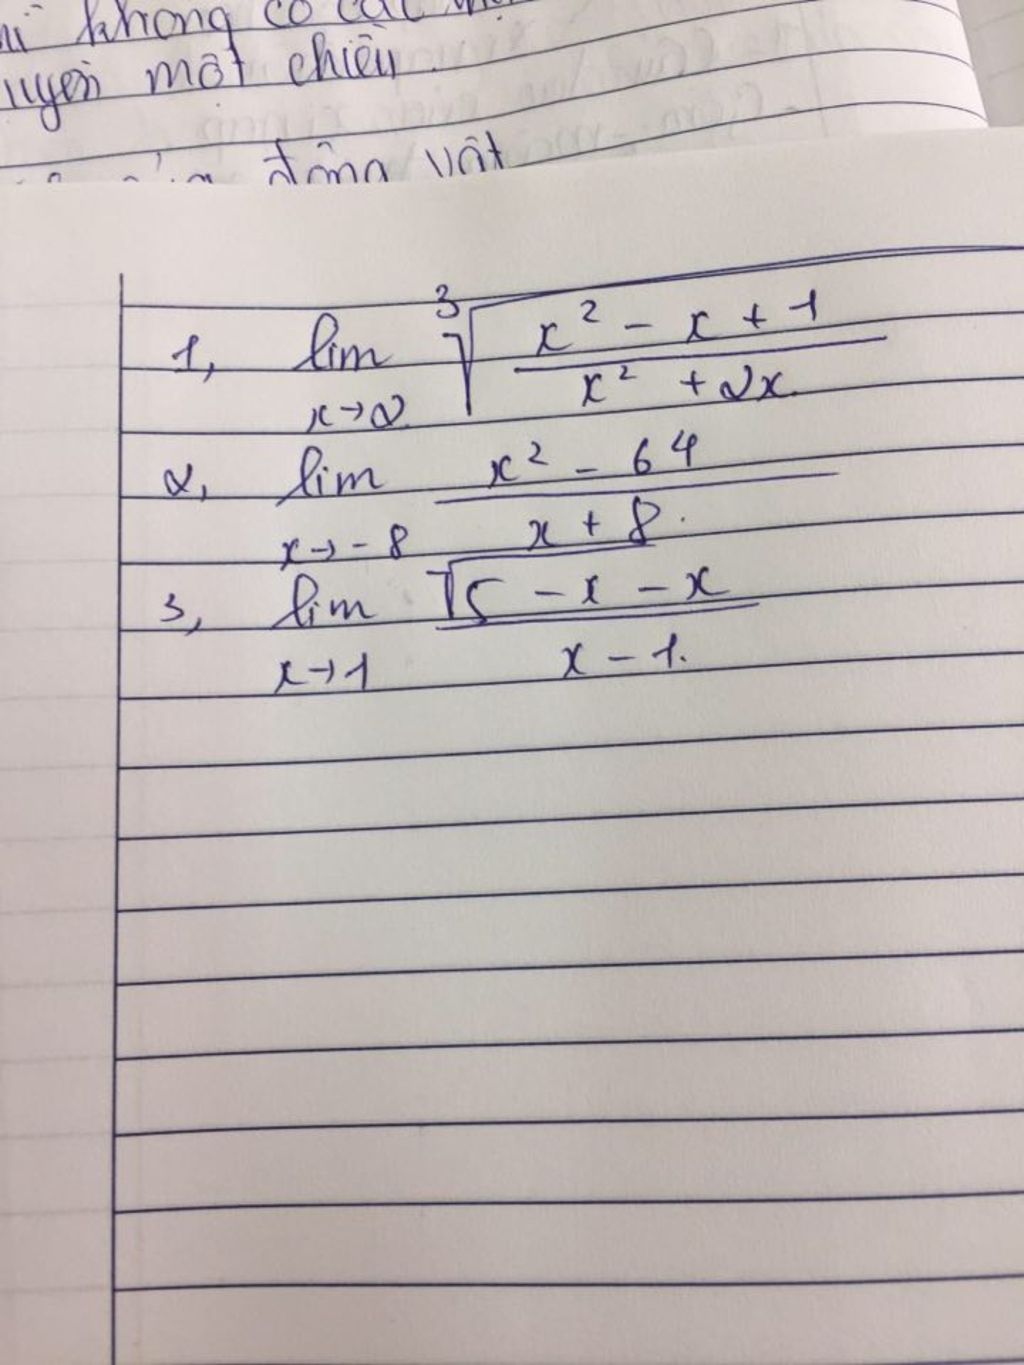 không có các
một chiều.
động vật
1, lim x→2 ∛((x² - x + 1)/(x² + 2x.))
2, lim x→-8 (x² - 64)/(x + 8.)
3, lim x→1 (√(5 - x) - x)/(x - 1.)